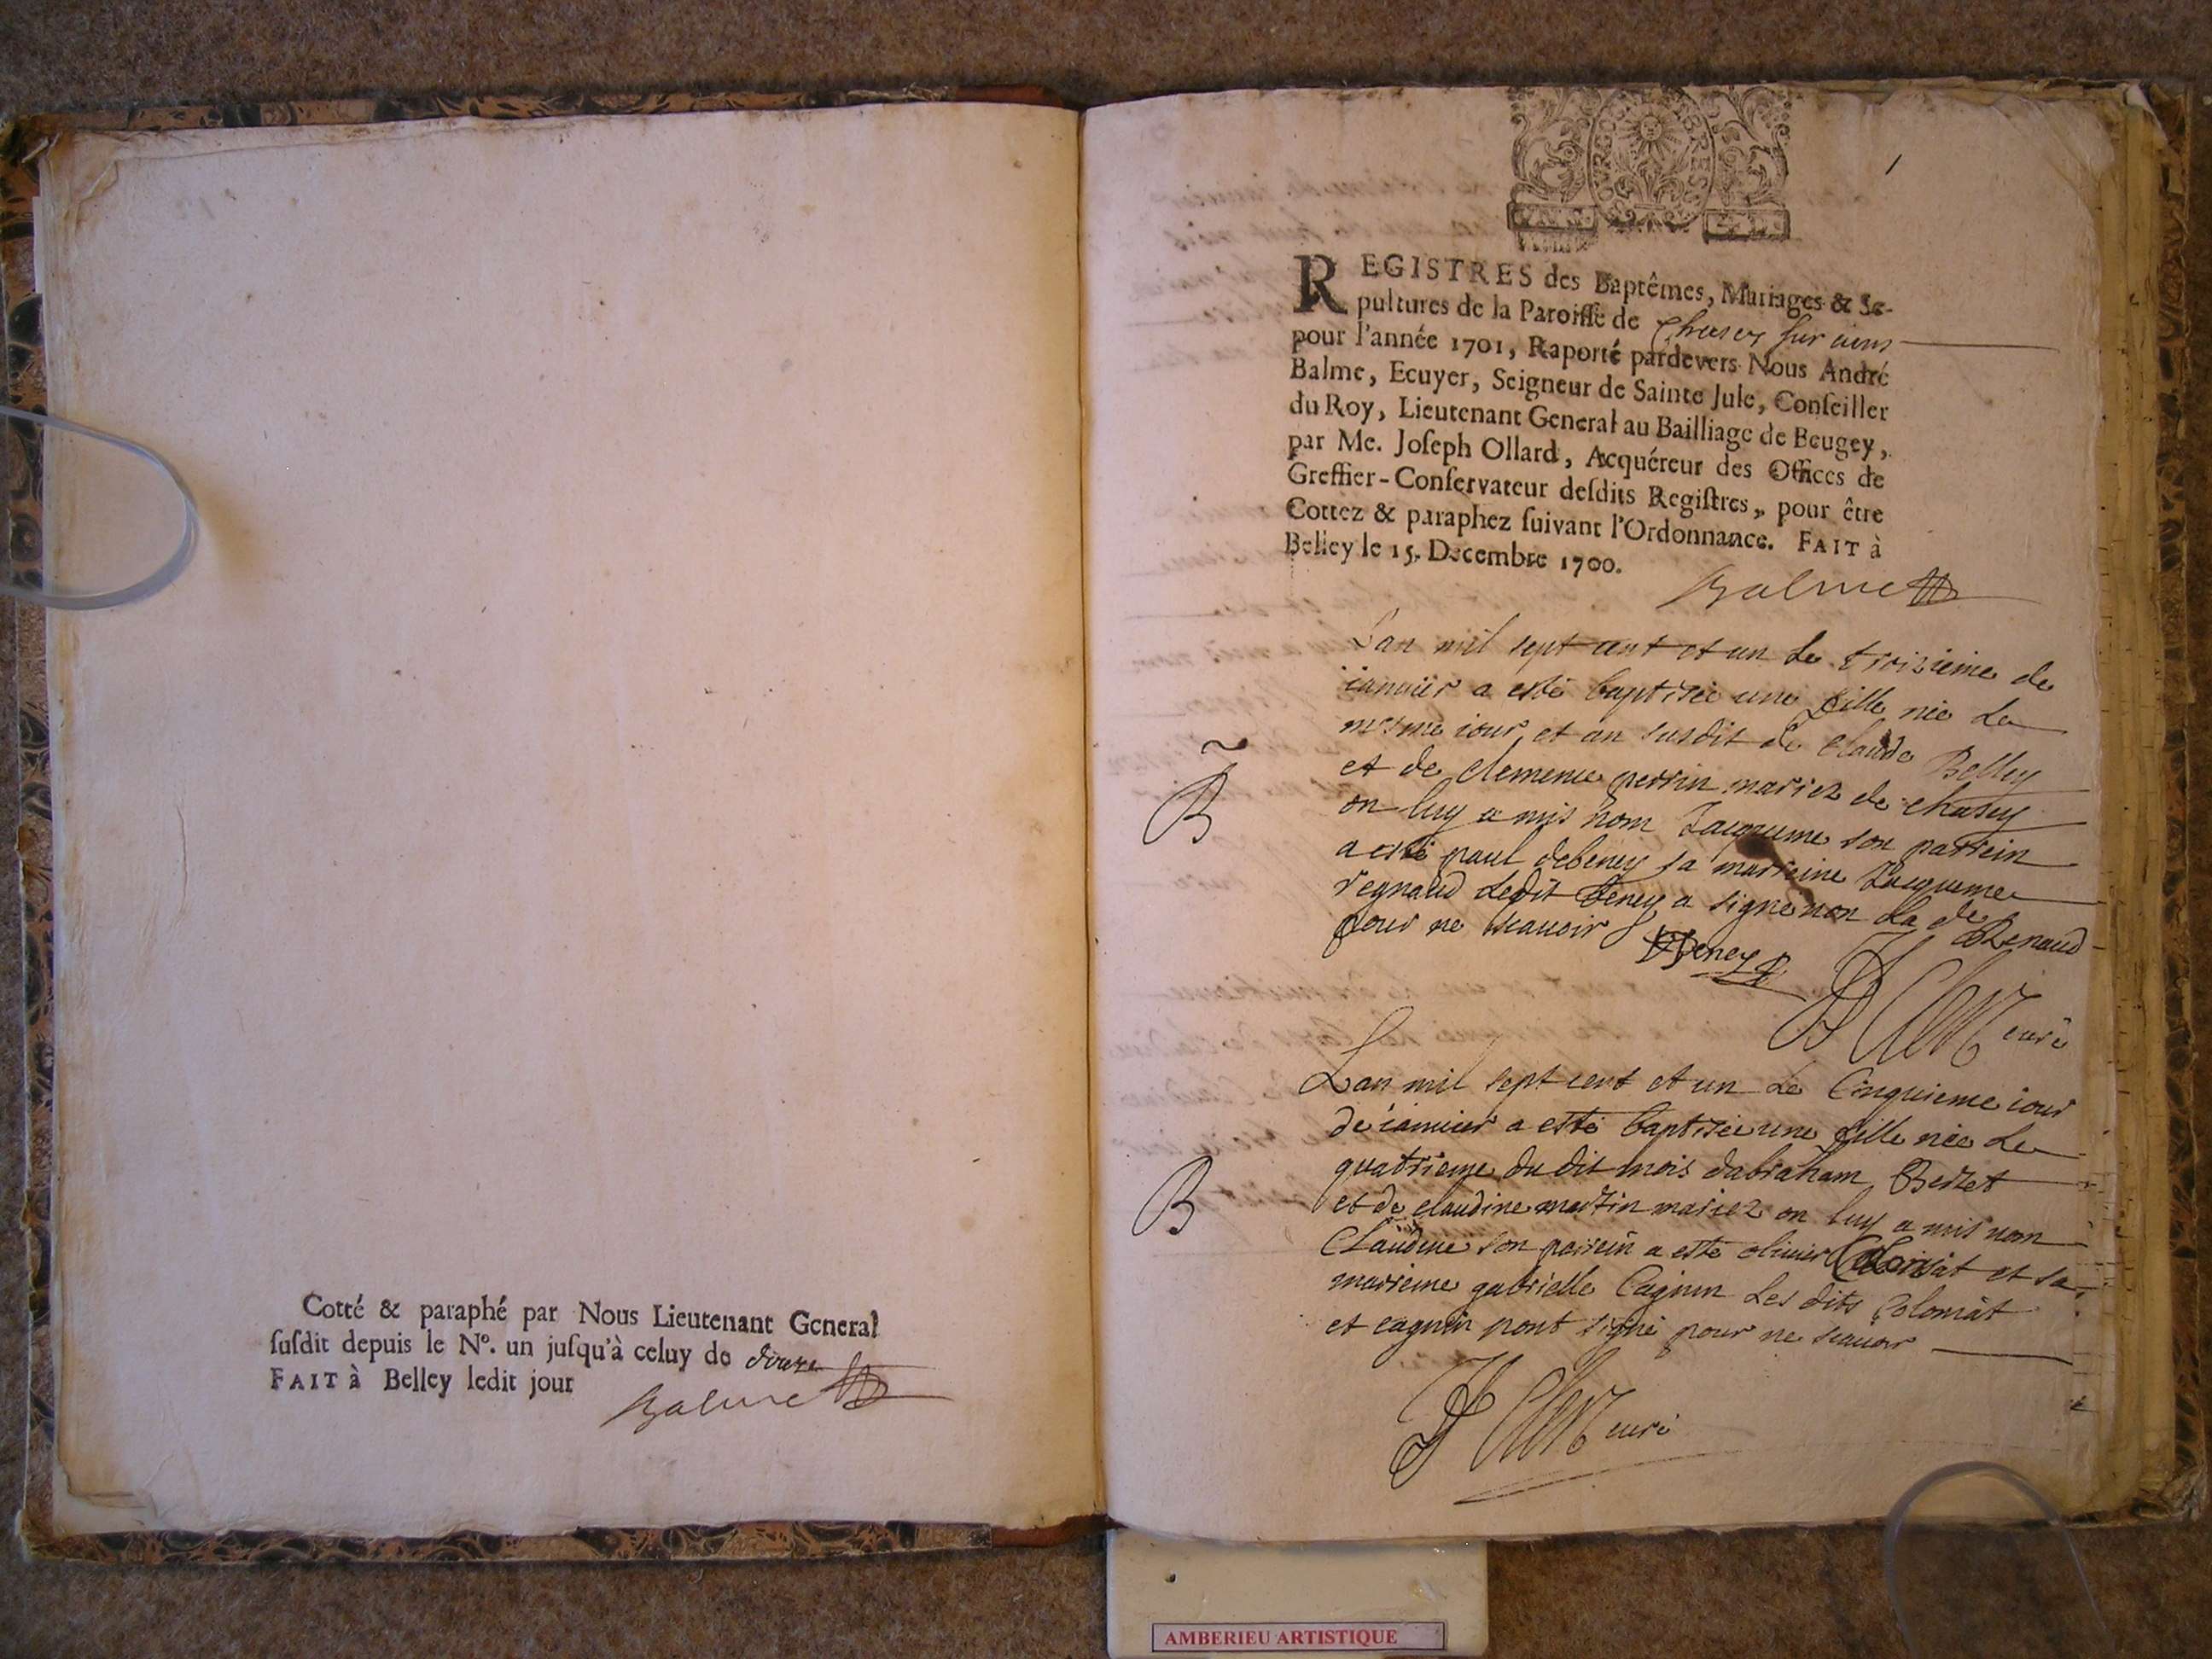 Cotté & paraphé par Nous Lieutenant General
suſdit depuis le N°. un juſqu'à celuy de douze
FAIT à Belley ledit jour
Balme
1
REGISTRES des Baptêmes, Mariages & Se-
pultures de la Paroiſſe de Chasey sur ains
pour l'année 1701, Raporté pardevers Nous André
Balme, Ecuyer, Seigneur de Sainte Jule, Conſeiller
du Roy, Lieutenant General au Bailliage de Beugey,
par Me. Joſeph Ollard, Acquéreur des Offices de
Greffier-Conſervateur deſdits Regiſtres, pour être
Cottez & paraphez ſuivant l'Ordonnance. FAIT à
Belley le 15. Decembre 1700.
Balme
Lan mil sept cent et un Le troisieme de
ianuier a esté baptisée une fille née Le
mesme iour et an susdit de Claude Belley
et de clemence perrin mariez de chasey
B
on luy a mis nom Jacqueme son parrein
a esté paul debeney sa marreine Jacqueme
regnaud Ledit Beney a signé non La de Renaud
pour ne scauoir
DBeney
curé
Lan mil sept cent et un Le Cinquieme iour
de ianuier a esté baptisée une fille née Le
quatrieme du dit mois dabraham Berzet
B
et de claudine martin mariez on luy a mis nom
Claudine son parrein a esté oliuier Colomat et sa
marreine gabrielle Cagnin Les dits Colomat
et cagnin nont signé pour ne scauoir
curé
AMBERIEU ARTISTIQUE